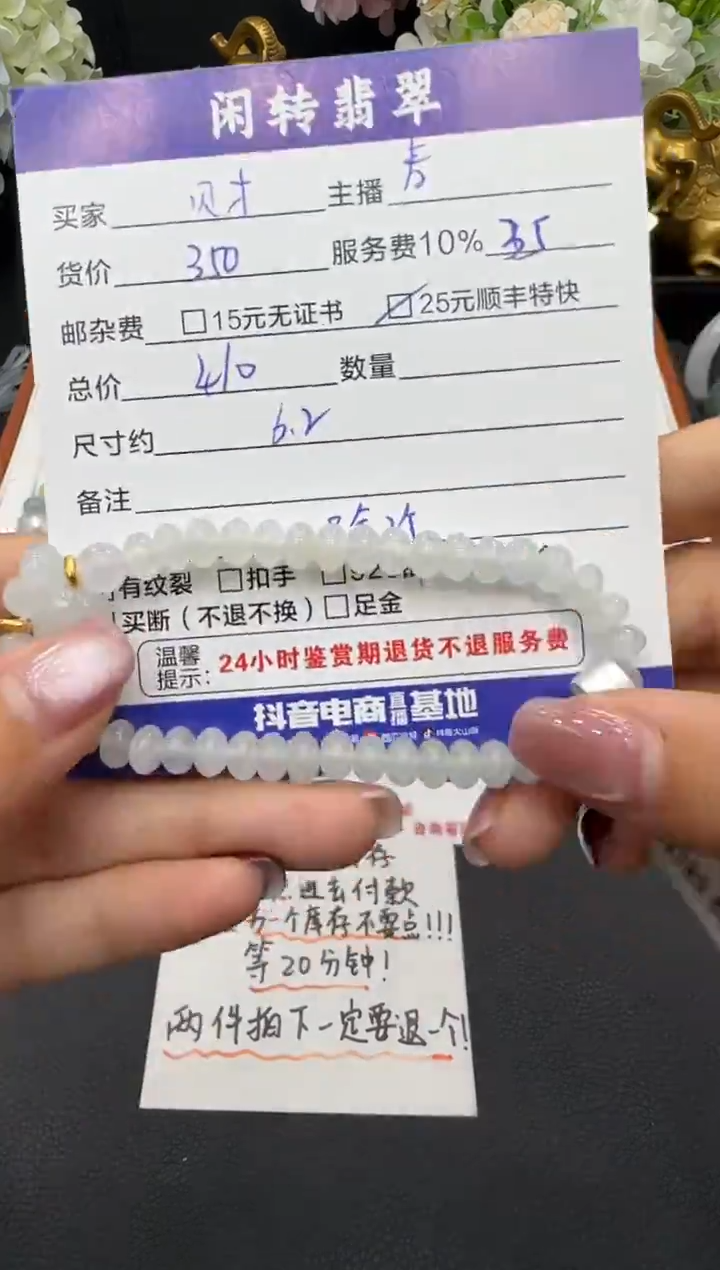 闲转翡翠
买家 贝才 主播 青
货价 350 服务费10% 35
邮杂费 □15元无证书 ☑25元顺丰特快
总价 410 数量
尺寸约 6.2
备注
有纹裂 □扣手
买断（不退不换）□足金
温馨提示： 24小时鉴赏期退货不退服务费
抖音电商直播基地
抖音火山版
存
进去付款
一个库存不要点!!!
等20分钟!
两件拍下一定要退一个!